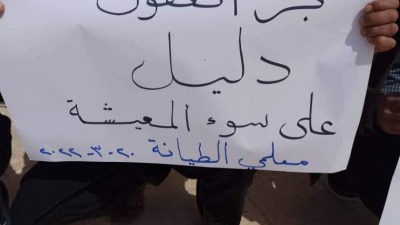 العقول
دليل
على سوء المعيشة
معلمي الطيانة ٢٠-٣-٢٠٢٢